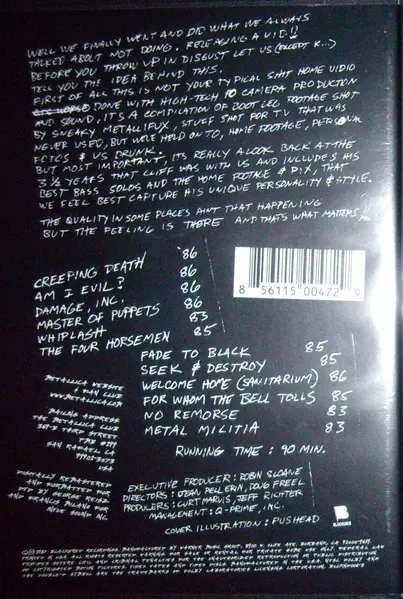 WELL WE FINALLY WENT AND DID WHAT WE ALWAYS
TALKED ABOUT NOT DOING. RELEASING A VID.!!
BEFORE YOU THROW UP IN DISGUST LET US (EXCEPT K...)
TELL YOU THE IDEA BEHIND THIS.
FIRST OF ALL THIS IS NOT YOUR TYPICAL SHIT HOME VIDIO
DONE WITH HIGH-TECH 10 CAMERA PRODUCTION
AND SOUND, IT'S A COMPILATION OF BOOTLEG FOOTAGE SHOT
BY SNEAKY METALLIFUX, STUFF SHOT FOR T.V. THAT WAS
NEVER USED, BUT WE'VE HELD ON TO, HOME FOOTAGE, PERSONAL
FOTOS & US DRUNK.
BUT MOST IMPORTANT, ITS REALLY A LOOK BACK AT THE
3 ½ YEARS THAT CLIFF WAS WITH US AND INCLUDES HIS
BEST BASS SOLOS AND THE HOME FOOTAGE & PIX, THAT
WE FEEL BEST CAPTURE HIS UNIQUE PERSONALITY & STYLE.
THE QUALITY IN SOME PLACES AINT THAT HAPPENING
BUT THE FEELING IS THERE AND THATS WHAT MATTERS!!
CREEPING DEATH '86
AM I EVIL? 86
DAMAGE, INC. 86
MASTER OF PUPPETS 86
WHIPLASH 83
THE FOUR HORSEMEN 85
8 56115 00472 9
FADE TO BLACK 85
SEEK & DESTROY 85
WELCOME HOME (SANITARIUM) 86
FOR WHOM THE BELL TOLLS 85
NO REMORSE 83
METAL MILITIA 83
RUNNING TIME : 90 MIN.
METALLICA WEBSITE
& FAN CLUB
WWW.METALLICA.COM
MAILING ADDRESS
THE METALLICA CLUB
369-B THIRD STREET
SAN RAFAEL CA
USA
DIGITALLY REMASTERED
AND FORMATTED FOR
DVD BY GEORGE
AND
SOUND INC.
EXECUTIVE PRODUCER : ROBIN SLOANE
DIRECTORS : JEAN PELLERIN, DOUG FREEL
PRODUCERS : CURT MARVIS, JEFF RICHTER
MANAGEMENT : Q-PRIME, INC.
COVER ILLUSTRATION : PUSHEAD
BLACKENED